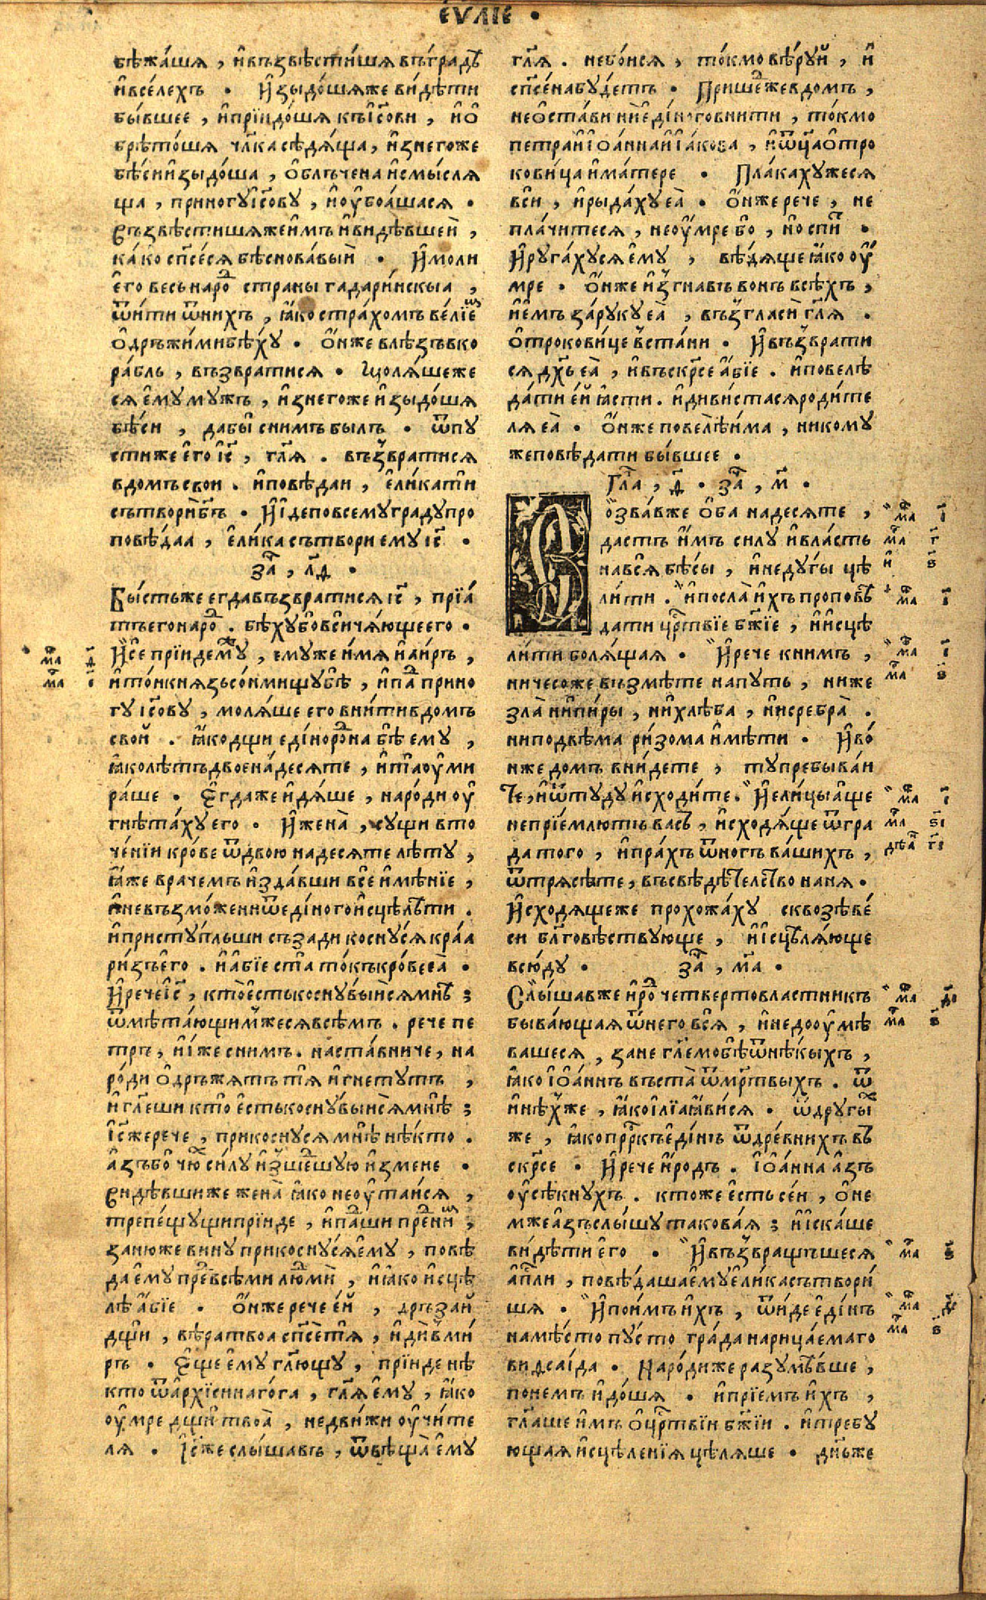 ЕѴЛІЕ .
бѣжа́шѧ , и҆въꙁвѣсти́шѧ въгра́дѣ
и҆все́лехъ . И҆ꙁыдо́шѧже ви́дѣти
бы́вшее , и҆прїидо́шѧ къі҆со́ви , и҆о҆
брѣто́шѧ чл҃ка сѣдѧ́ща , и҆ꙁнегоже
бѣ́си и҆ꙁыдо́ша , о҆блъче́на и҆смы́слѧ
ща , приногу̀ і҆со́ву , и҆оу҆боѧ́шасѧ .
Въꙁвѣсти́шѧже и҆мъ и҆ви́дѣвшеи ,
ка́ко сп҃се́сѧ бѣснова́выи . И҆моли
е҆го весь наро́д страны̀ гадари́нскыа ,
ѿи́ти ѿни́хъ , ꙗ҆ко стра́хомъ ве́лїем
о҆дръжи́ми бѣ́ху . О҆нже влѣ́ꙁъ вко
ра́бль , въꙁврати́сѧ . Молѧ́шеже
сѧ є҆му̀ му́жъ , и҆ꙁнегоже и҆ꙁыдо́шѧ
бѣ́си , дабы̀ сни́мъ бы́лъ . ѿпу
сти́же е҆го̀ і҆с҃ , гл҃ѧ . въꙁврати́сѧ
вдо́мъ сво́и . и҆повѣ́даи , е҆ли́ка тѝ
сътворѝ б҃гъ . И҆ и҆́де повсему̀ гра́ду про
повѣ́даа , е҆ли́ка сътворѝ ему̀ і҆с҃ .
ꙁа҄ , л҃д .
Бы́стьже е҆гда̀ въꙁврати́сѧ і҆с҃ , прїѧ́
тъ е҆го̀ наро́д . бѣ́ху бо всѝ ча́юще е҆го̀ .
И҆сѐ прїи́де му́ж , е҆му́же и҆́мѧ и҆аи́ръ ,
и҆то́и кнѧ́ꙁь со́нмищу бѣ̀ , и҆па́д прино
гу̀ і҆со́ву , молѧ́ше е҆го̀ вни́ти вдо́мъ
сво́й . ꙗ҆ко дщѝ е҆диноро́дна бѣ̀ е҆му̀ ,
ꙗ҆ко лѣ́тъ двоена́десѧте , и҆та̀ оу҆ми
ра́ше . Е҆гда́же и҆дѧ́ше , наро́ди оу҆
гнѣта́ху е҆го̀ . И҆жена̀ , су́щи вто
че́нїи кро́ве ѿдвою̀ на́десѧте лѣ́ту ,
ꙗ҆́же враче́мъ и҆ꙁда́вши всѐ и҆мѣ́нїе ,
и҆невъꙁмо́же ни ѿе҆ди́ного и҆сцѣлѣ́ти .
и҆присту́пльши съꙁадѝ косну́сѧ кра́а
ри́ꙁъ е҆го̀ . и҆а҆́бїе ста̀ то́къ кро́ве е҆ѧ̀ .
И҆речѐ і҆с҃ , кто̀ е҆́сть косну́выисѧ мнѣ̀ ;
ѿмѣта́ющимжесѧ всѣ́мъ . речѐ пе
тръ , и҆и҆́же сни́мъ . наста́вниче , на
ро́ди о҆дръжа́тъ тѧ̀ и҆гнету́тъ ,
и҆гл҃еши кто̀ е҆́сть косну́выисѧ мнѣ̀ ;
І҆с҃же речѐ , прикосну́сѧ мнѣ̀ нѣ́кто .
а҆́ꙁъ бо чю́х си́лу и҆ꙁше́дшую и҆ꙁменѐ .
Ви́дѣвшиже жена̀ ꙗ҆ко не оу҆таи́сѧ ,
трепе́щущи прїи́де , и҆па́дши пред ни́м ,
ꙁаню́же вину̀ прикосну́сѧ є҆му̀ , повѣ́
да е҆му̀ пред всѣ́ми людмѝ , и҆ꙗ҆́ко и҆сцѣ
лѣ̀ а҆́бїе . О҆нже речѐ е҆́й , дръꙁа́й
дщи , вѣ́ра твоа̀ сп҃се́ тѧ , и҆дѝ вми́
рѣ . Е҆щѐ е҆му̀ гл҃ющу , прїи́де нѣ́
кто ѿа҆рхїсинаго́га , гл҃ѧ е҆му̀ , ꙗ҆ко
оу҆́мре дщѝ твоа̀ , недви́жи оу҆чи́те
лѧ . І҆с҃же слы́шавъ , ѿвѣща̀ е҆му̀
гл҃ѧ . небо́исѧ , то́кмо вѣ́руй , и҆
сп҃се́на бу́детъ . Прише́дже вдо́мъ ,
не оста́ви ни е҆ди́ного вни́ти , то́кмо
петра̀ и҆ і҆оа́нна и҆ і҆а́кова , и҆ѿц҃а отро
кови́ца и҆ма́тере . Пла́кахужесѧ
всѝ , и҆рыда́ху е҆ѧ̀ . О҆нже речѐ , не
пла́читесѧ , не оу҆́мре бо , но спи́т .
И҆руга́хусѧ е҆му̀ , вѣ́дѧще ꙗ҆ко оу҆́
мре . О҆нже и҆ꙁгна́въ во́нъ всѣ́хъ ,
и҆е҆́мъ ꙁа ру́ку е҆ѧ̀ , въꙁгласѝ гл҃ѧ .
о҆трокови́це въста́ни . И҆въꙁврати
сѧ дх҃ъ е҆ѧ̀ , и҆въскр҃се а҆́бїе . и҆повелѣ̀
да́ти е҆́й ꙗ҆́сти . и҆диви́стасѧ роди́те
лѧ е҆ѧ̀ . О҆нже повелѣ̀ и҆́ма , никому́
же повѣ́дати бы́вшее .
Гла҄ , д҃ . ꙁа҄ , м҃ .
Оꙁва́вже о҆́ба на́десѧте ,
да́стъ и҆́мъ си́лу и҆вла́сть
навсѧ̀ бѣ́сы , и҆неду́гы цѣ
ли́ти . и҆посла̀ и҆́хъ проповѣ́
дати црт҃вїе бж҃їе , и҆и҆сцѣ
ли́ти болѧ́щаѧ . И҆речѐ кни́мъ ,
ничесо́же въꙁмѣ́те напу́ть , ни же
ꙁла̀ ни пи́ры , ни хлѣ́ба , ни сребра̀ .
ни подвѣ́ма ри́ꙁома и҆мѣ́ти . И҆во
ньже до́мъ вни́дете , ту пребыва́и
те , и҆ѿту́ду и҆сходи́те . И҆е҆ли́цы а҆́ще
непрїе́млютъ ва́съ , и҆сходѧ́ще ѿгра
да того̀ , и҆пра́хъ ѿно́гъ ва́шихъ ,
ѿтрѧсѣ́те , въсвѣдѣ́телство нанѧ̀ .
И҆сходѧ́щеже прохожа́ху сквоꙁѣ ве́
си бл҃говѣ́ствующе , и҆и҆сцѣлѧ́юще
всю́ду . ꙁа҄ , м҃а .
Слы́шавже и҆́род четвертовла́стникъ
быва́ющаѧ ѿнего̀ всѧ̀ , и҆недооумѣ́
вашесѧ , ꙁанѐ гл҃емо бѣ̀ ѿнѣ́кыхъ ,
ꙗ҆ко і҆оа́ннъ въста̀ ѿмр҃твыхъ . ѿ
и҆нѣ́хже , ꙗ҆ко и҆лїа̀ ꙗ҆ви́сѧ . ѿдругы́х
же , ꙗ҆ко прⷪ҇ркъ е҆ди́нъ ѿдре́внихъ въ
скр҃се . И҆речѐ и҆́родъ . І҆оа́нна а҆́ꙁъ
оу҆сѣ́кнухъ . кто́же е҆́сть се́и , о҆не
мже а҆́ꙁъ слы́шу такова́ѧ ; и҆и҆ска́ше
ви́дѣти е҆го̀ . И҆въꙁвра́щьшесѧ
а҆п҃ли , повѣ́даша е҆му̀ е҆ли́ка сътвори́
шѧ . И҆пои́мъ и҆́хъ , ѿи́де е҆ди́нъ
на мѣ́сто пу́сто гра́да нарица́емаго
виѳсаи́да . Наро́диже раꙁумѣ́вше ,
по не́мъ и҆до́шѧ . и҆прїе́мъ и҆́хъ ,
гл҃аше и҆́мъ о҆црт҃вїи бж҃їи . и҆требу
ющаѧ и҆сцѣле́нїѧ цѣлѧ́ше . дн҃ьже